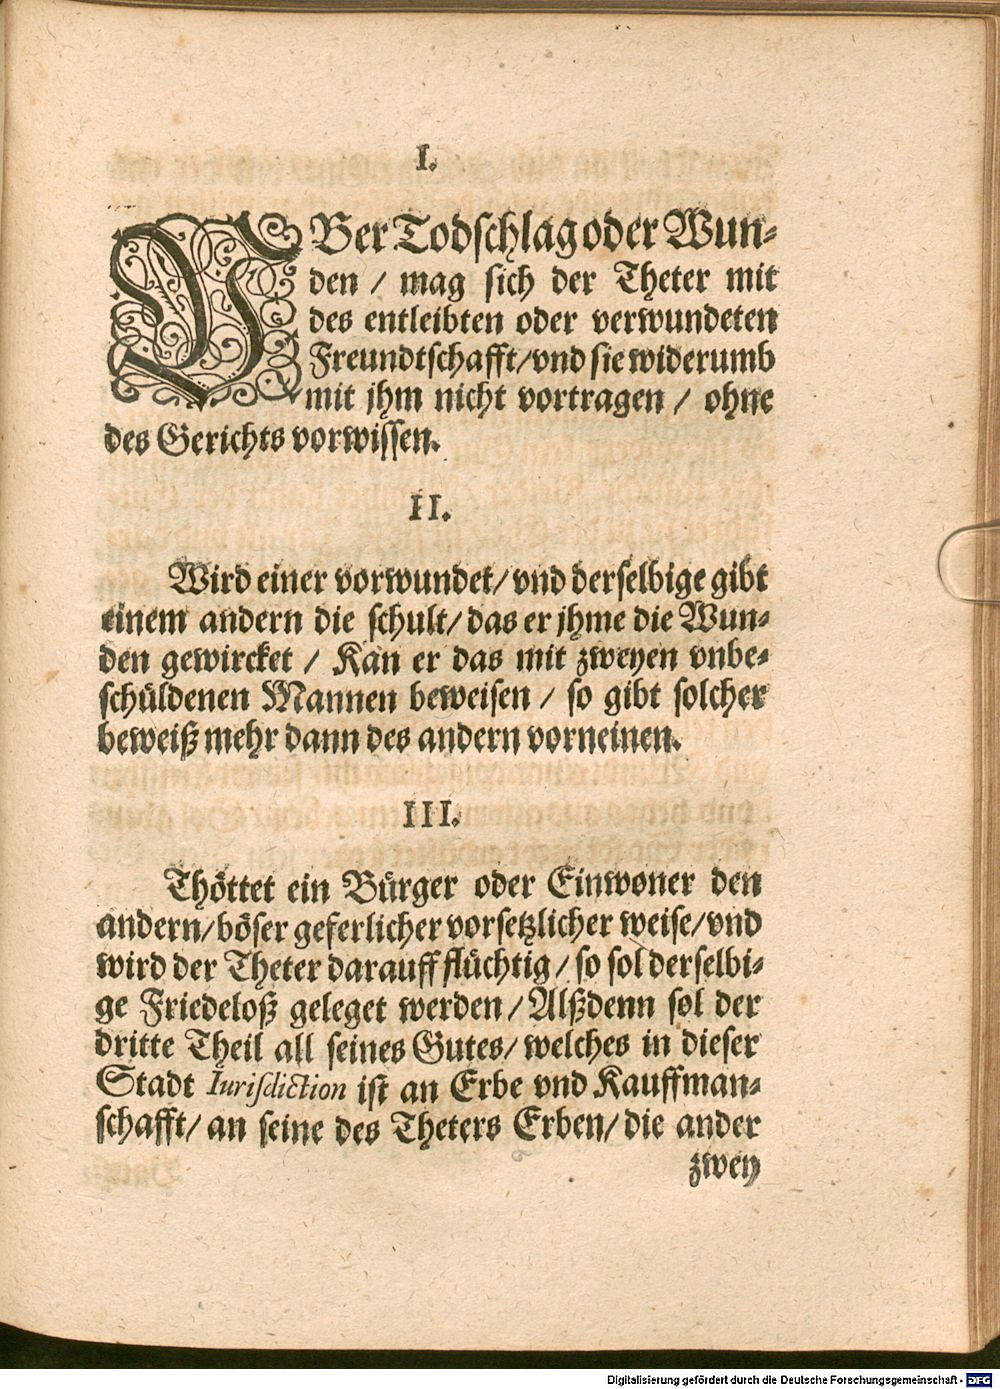 I.
VBer Todschlag oder Wun⸗
den / mag sich der Theter mit
des entleibten oder verwundeten
Freundtschafft/vnd sie widerumb
mit jhm nicht vortragen / ohne
des Gerichts vorwissen.
II.
Wird einer vorwundet/vnd derselbige gibt
einem andern die schult/das er jhme die Wun⸗
den gewircket / Kan er das mit zweyen vnbe⸗
schüldenen Mannen beweisen / so gibt solcher
beweiß mehr dann des andern vorneinen.
III.
Thöttet ein Bürger oder Einwoner den
andern/böser geferlicher vorsetzlicher weise/vnd
wird der Theter darauff flüchtig/so sol derselbi⸗
ge Friedeloß geleget werden/Alßdenn sol der
dritte Theil all seines Gutes/welches in dieser
Stadt Iurisdiction ist an Erbe vnd Kauffman⸗
schafft/an seine des Theters Erben/die ander
zwey
Digitalisierung gefördert durch die Deutsche Forschungsgemeinschaft - DFG